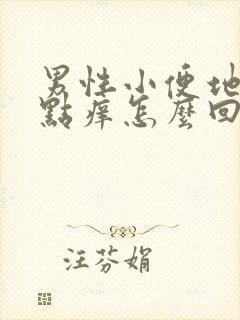 男性小便地
點癢怎麼回
汪芬娟